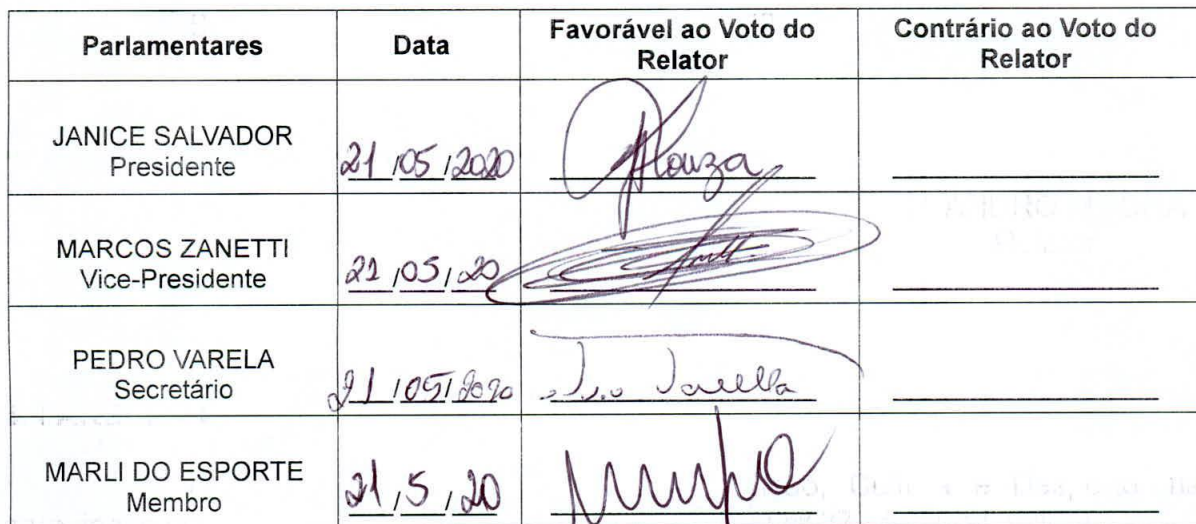 Parlamentares Data Favorável ao Voto do Relator Contrário ao Voto do Relator
JANICE SALVADOR
Presidente 21/05/2020 Souza
MARCOS ZANETTI
Vice-Presidente 21/05/20
PEDRO VARELA
Secretário 21/05/2020 Varella
MARLI DO ESPORTE
Membro 21/5/20